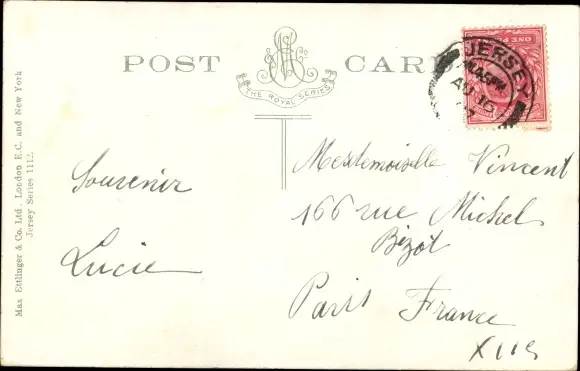 POST CARD
THE ROYAL SERIES
Max Ettlinger & Co. Ltd. London E.C. and New York
Jersey Series 1112.
JERSEY
AU 16
Souvenir
Lucie
Mesdemoiselle Vincent
166 rue Michel
Bizot
Paris France